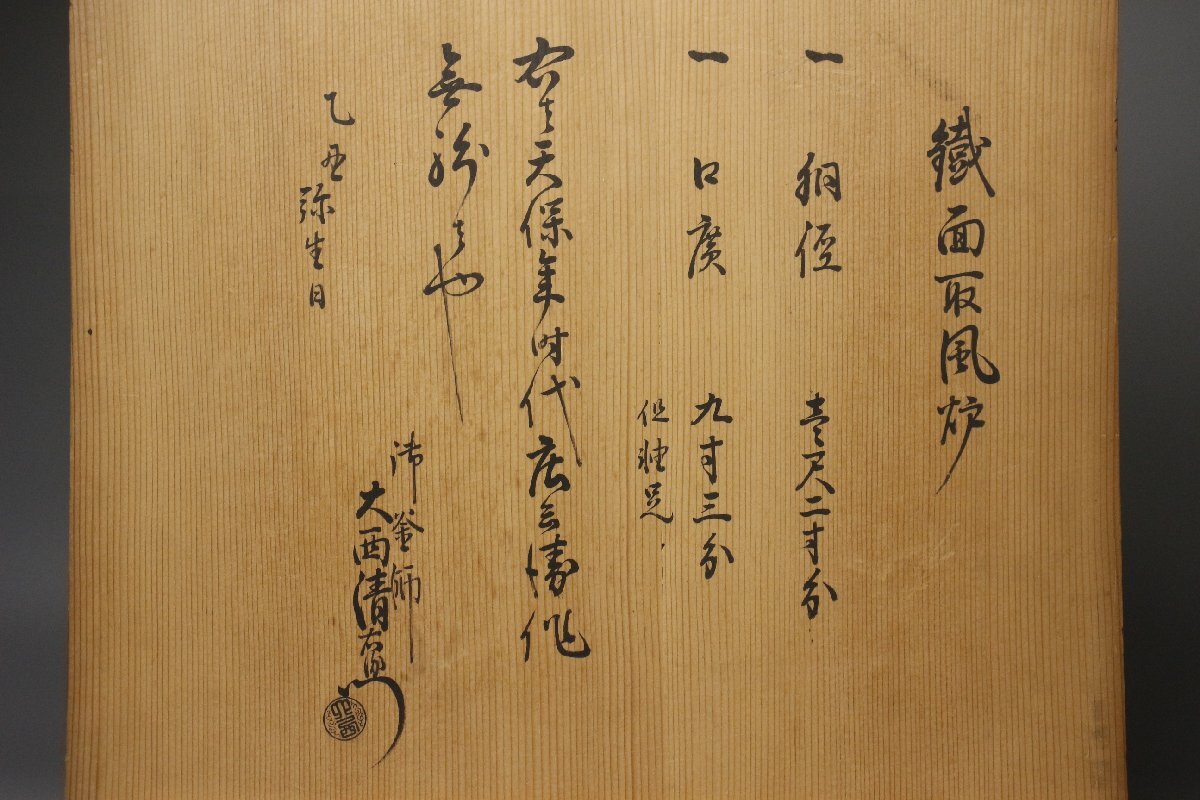 鐵面取風炉
一 胴径 壱尺二寸分
一 口廣 九寸三分
但
右者天保年时代 作
無 之也
乙丑弥生日
御釜師
大西清右衛門